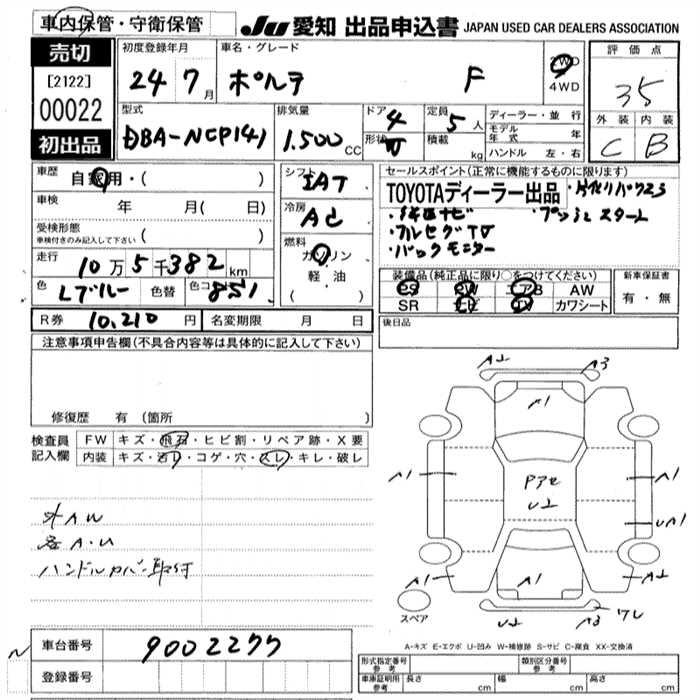 車内保管・守衛保管
JU 愛知 出品申込書 JAPAN USED CAR DEALERS ASSOCIATION
売切
[2122]
00022
初出品
初度登録年月
24 7月
車名・グレード
ポルテ F
2WD
4WD
評価点
35
外装 内装
C B
型式
DBA-NCP141
排気量
1.500 CC
ドア 4
形状
定員 5人
積載 kg
ディーラー・並行
モデル年式 年
ハンドル 左・右
車歴 自家用・( )
車検 年 月( 日)
受検形態
車検付きのみ記入して下さい ( )
走行 10万5千382km
色 Lブルー 色替 色コ 851
シフト IAT
冷房 AC
燃料 ガソリン
軽・油
( )
セールスポイント(正常に機能するものに限ります)
TOYOTAディーラー出品
・フルセグTV ・プッシュスタート
・バックモニター
装備品(純正品に限り○をつけてください)
PS PW AB AW
SR ナビ TV カワシート
新車保証書
有・無
R券 10,210円 名変期限 月 日
後日品
注意事項申告欄(不具合内容等は具体的に記入して下さい)
修復歴 有 (箇所 )
検査員記入欄
FW キズ・飛石・ヒビ割・リペア跡・X要
内装 キズ・汚レ・コゲ・穴・スレ・キレ・破レ
外AW
各A・U
ハンドルカバー取付
A2 A3
A1
A1 Pアセ A1
U2 UA1
A1 A1 A2
U2 A3 ワレ
スペア
A-キズ E-エクボ U-凹み W-補修跡 S-サビ C-腐食 XX-交換済
車台番号 9002277
登録番号
型式指定番号 参考
類別区分番号 参考
車庫証明用 参考 長さ cm 幅 cm 高さ cm